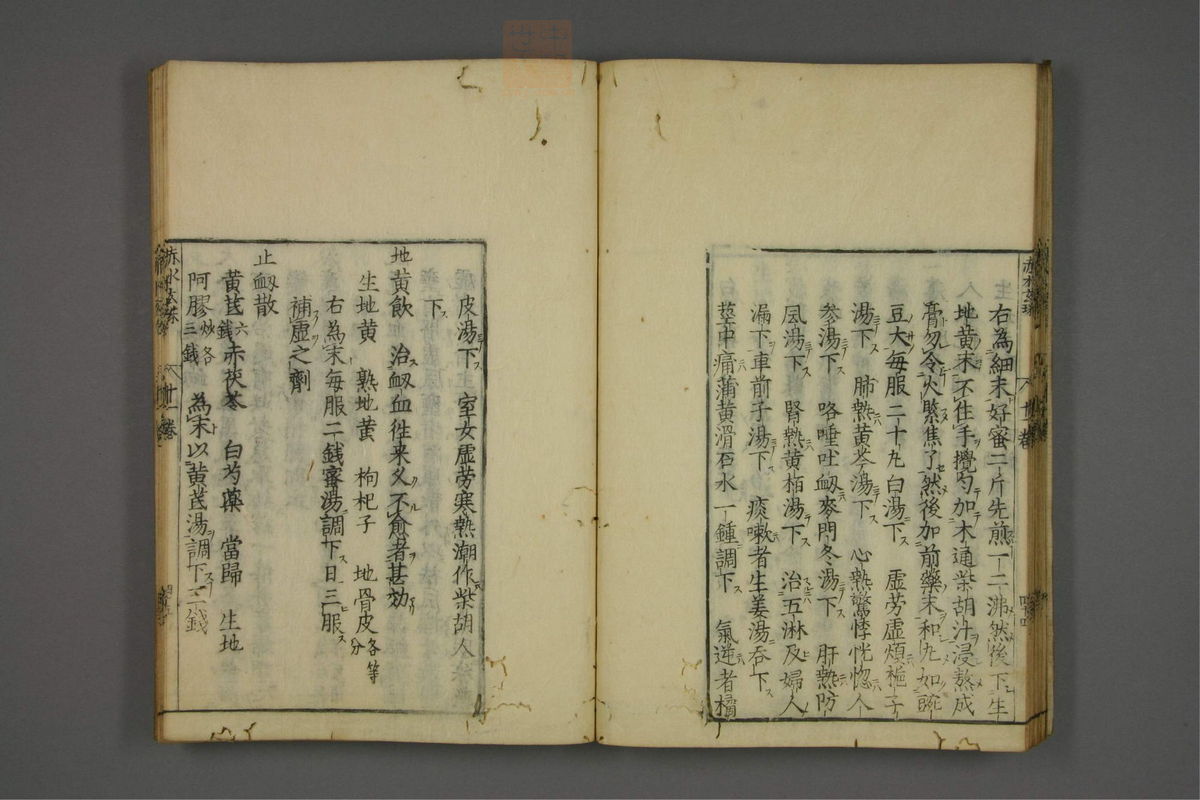 右為細末好蜜二斤先煎一二沸然後下生
地黄末不住手攪勻加木通柴胡汁浸熬成
膏勿令火緊焦了然後加前藥末和丸如豌
豆大每服二十丸白湯下　虚劳虚煩梔子
湯下　肺熱黄芩湯下　心熱驚悸恍惚人
參湯下　咯唾吐衂麥門冬湯下　肝熱防
風湯下　腎熱黄栢湯下　治五淋及婦人
漏下車前子湯下　痰嗽者生姜湯吞下
莖中痛蒲黄滑石水一鍾調下　氣逆者橘
皮湯下　室女虚劳寒熱潮作柴胡人
下
地黄飲　治衂血徃来久不愈者甚効
生地黄　熟地黄　枸杞子　地骨皮各等分
右為末每服二銭蜜湯調下日三服
補虚之劑
止衂散
黄芪六銭　赤茯苓　白芍藥　當歸　生地
阿膠炒各三銭　為末以黄芪湯調下二銭
赤水玄珠